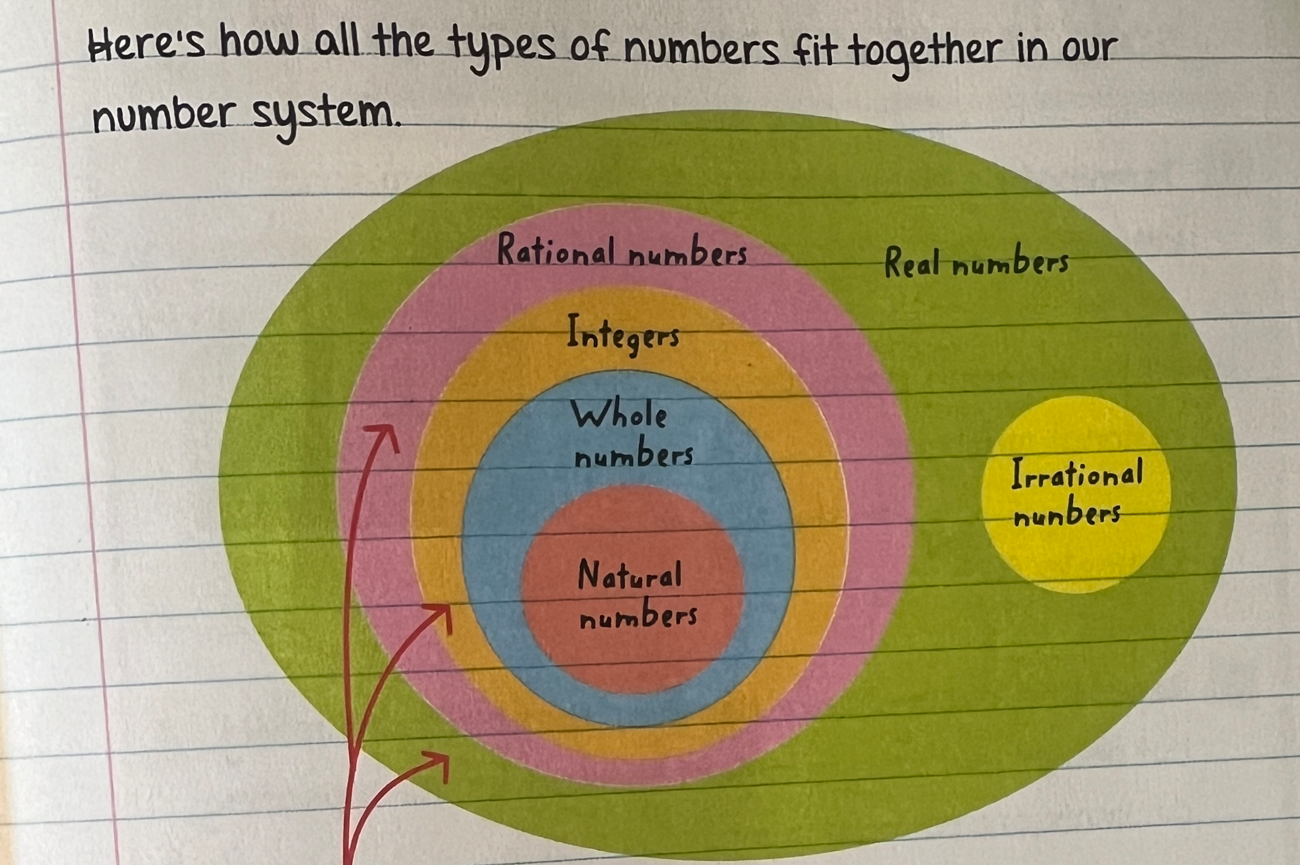 Here's how all the types of numbers fit together in our
number system.
Rational numbers
Real numbers
Integers
Whole
numbers
Irrational
nunbers
Natural
numbers